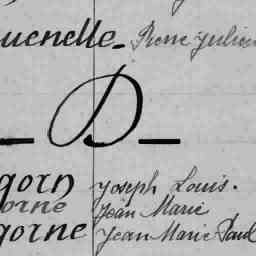 uenelle_ Pierre Julien
_ D _
gorn Joseph Louis.
orne Jean Marie
gorne Jean Marie Paul